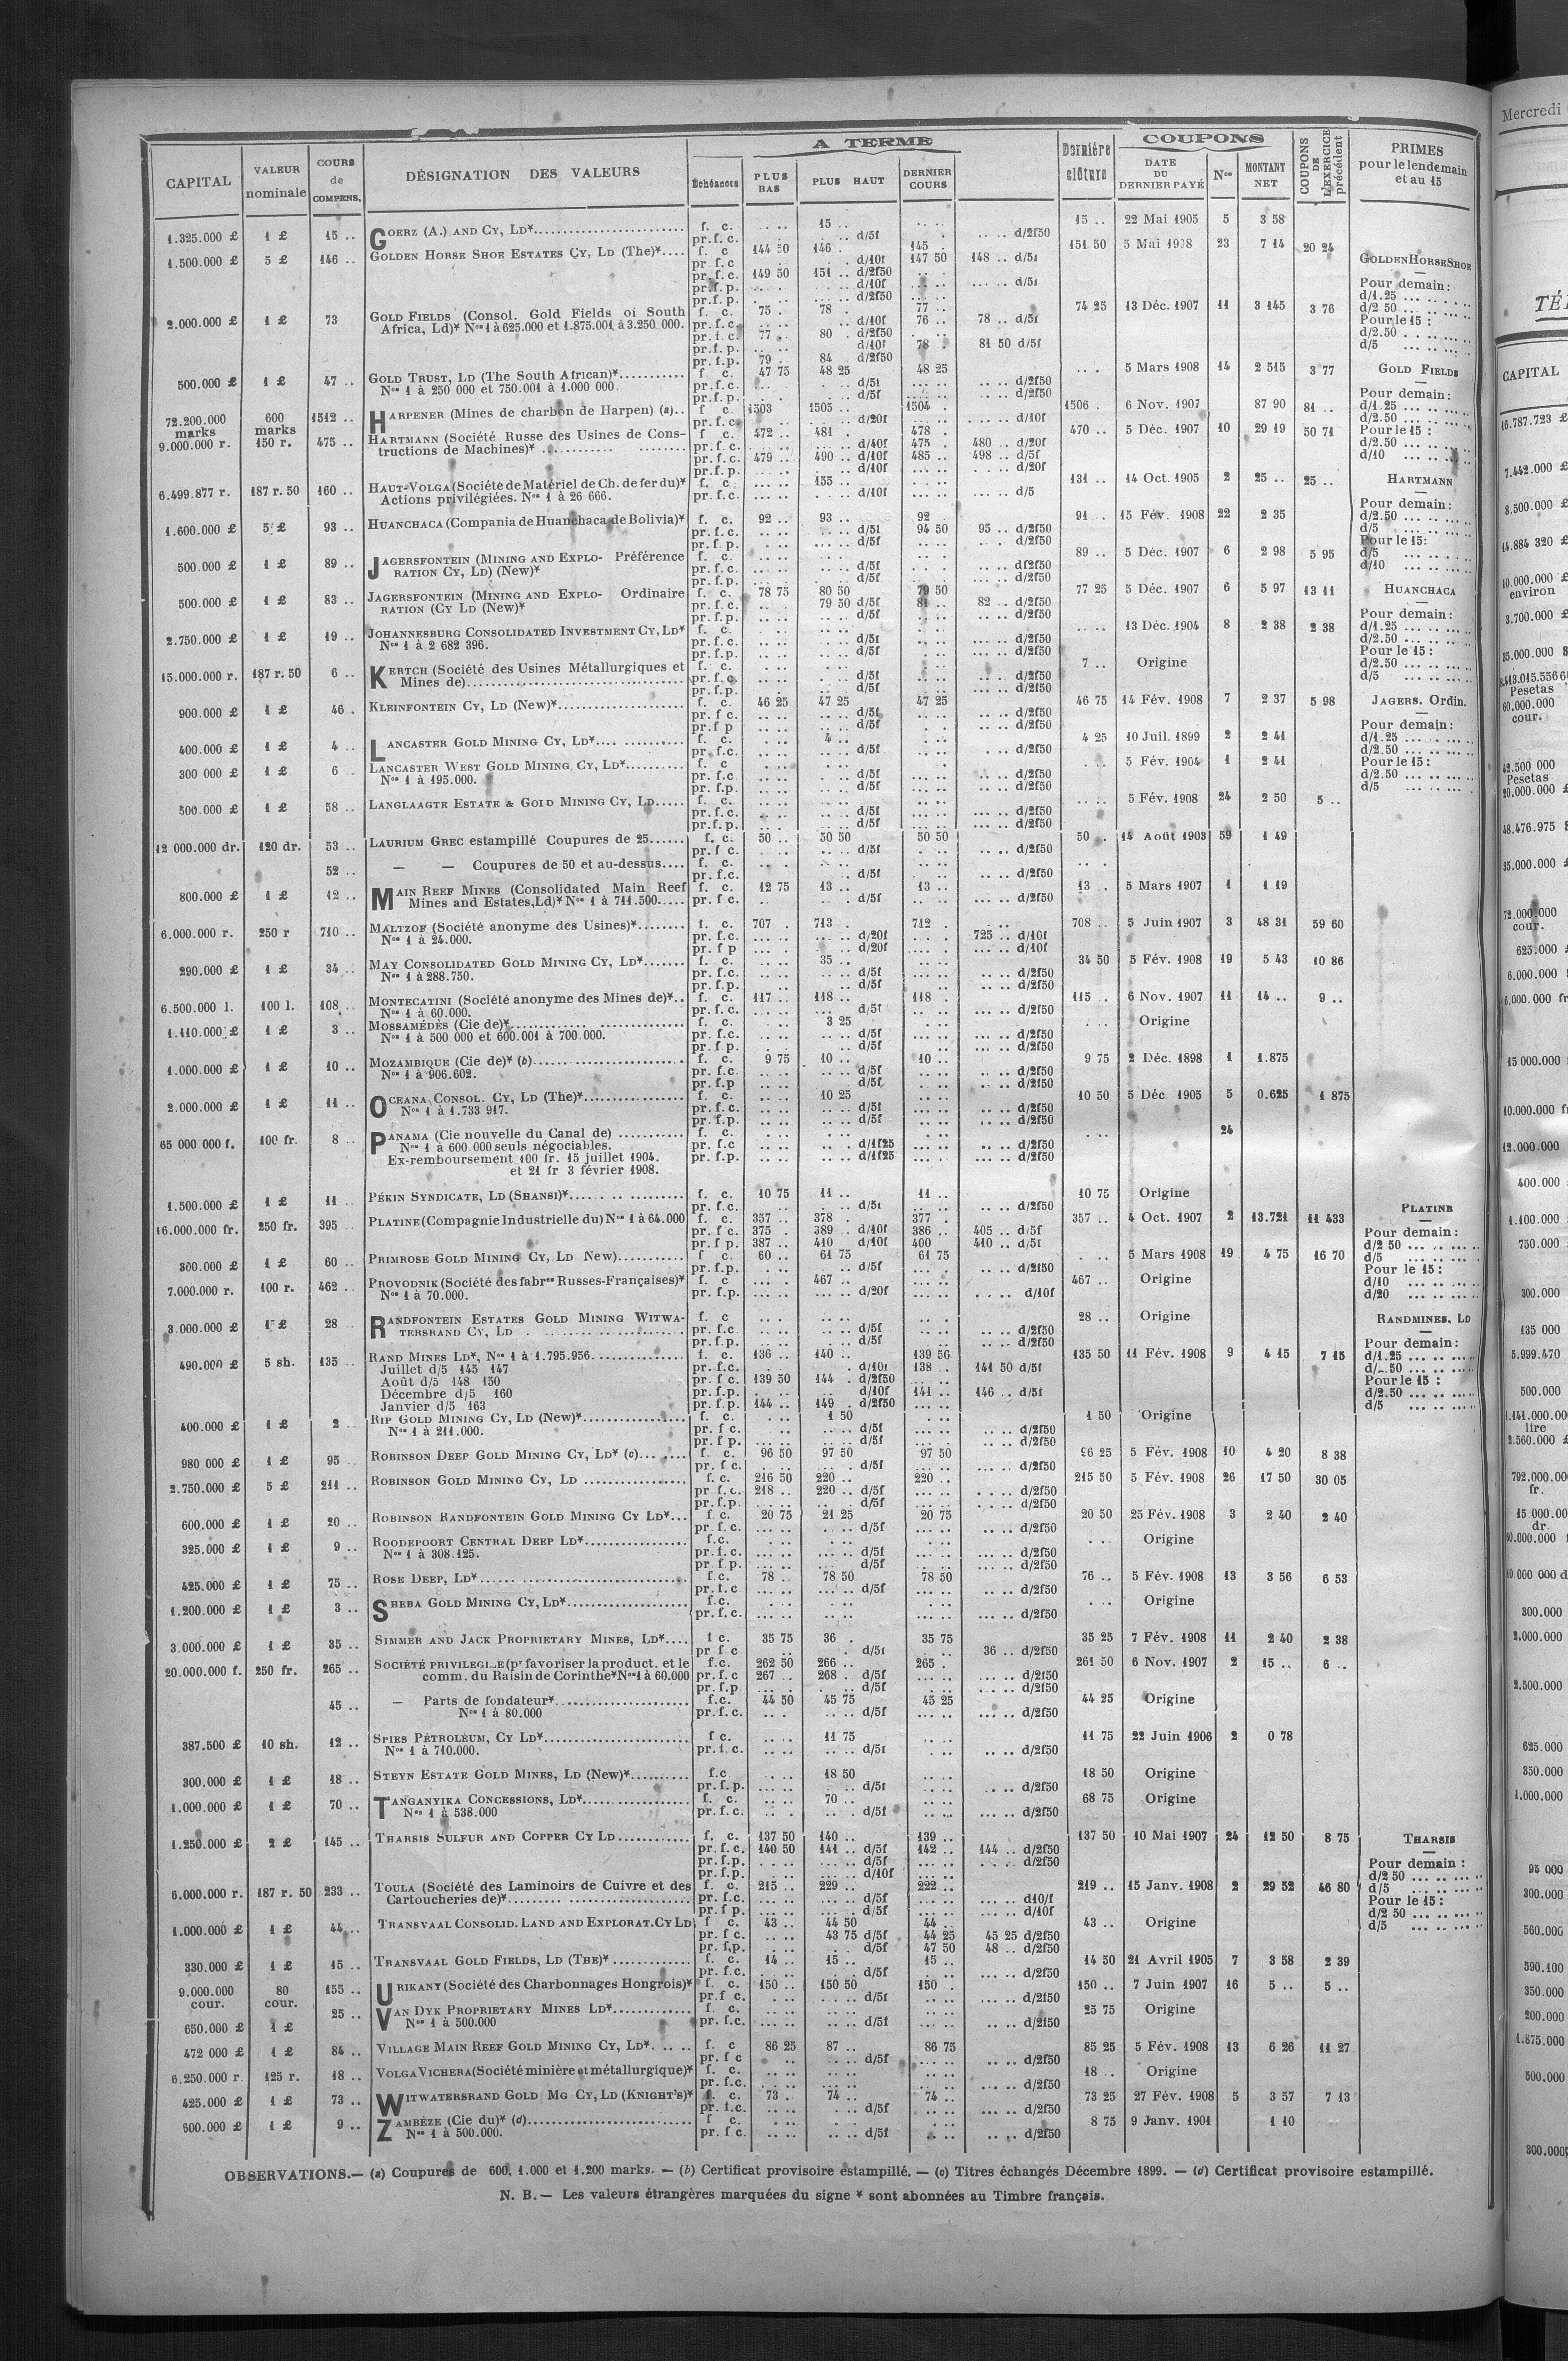 A TERME
COUPONS
CAPITAL | VALEUR nominale | COURS de COMPENS. | DÉSIGNATION DES VALEURS | Échéances | PLUS BAS | PLUS HAUT | DERNIER COURS | Dernière clôture | DATE DU DERNIER PAYÉ | Nos | MONTANT NET | COUPONS DE L'EXERCICE précédent | PRIMES pour le lendemain et au 15
1.325.000 £ | 1 £ | 15 .. | GOERZ (A.) AND CY, LD* | f. c. | 15 .. | 15 .. | 22 Mai 1905 | 5 | 3 58
pr.f.c. | d/5f | d/2f50
1.500.000 £ | 5 £ | 146 .. | GOLDEN HORSE SHOE ESTATES CY, LD (The)* | f. c | 144 50 | 146 . | 145 . | 151 50 | 5 Mai 1908 | 23 | 7 14 | 20 24
pr.f.c | d/10f | 147 50 | 148 .. d/5f
pr.f.c. | 149 50 | 151 .. d/2f50
pr.f.p. | d/10f | d/5f
pr.f.p. | d/2f50
2.000.000 £ | 1 £ | 73 | GOLD FIELDS (Consol. Gold Fields of South | f. c. | 75 . | 78 . | 77 .. | 74 25 | 13 Déc. 1907 | 11 | 3 145 | 3 76
Africa, Ld)* Nos 1 à 625.000 et 1.875.001 à 3.250.000. | pr.f.c. | d/10f | 76 .. | 78 .. d/5f
pr.f.c. | 77 . | 80 . d/2f50
pr.f.p. | d/10f | 78 . | 81 50 d/5f
pr.f.p. | 79 . | 84 . d/2f50
500.000 £ | 1 £ | 47 .. | GOLD TRUST, LD (The South African)* | f c. | 47 75 | 48 25 | 48 25 | 5 Mars 1908 | 14 | 2 515 | 3 77
Nos 1 à 250 000 et 750.001 à 1.000 000. | pr.f.c. | d/5f | d/2f50
pr.f.p. | d/5f | d/2f50
72.200.000 marks | 600 marks | 1512 .. | HARPENER (Mines de charbon de Harpen) (a).. | f c. | 1503 | 1505 .. | 1504 . | 1506 . | 6 Nov. 1907 | 87 90 | 81 ..
pr.f.c. | d/20f | d/10f
9.000.000 r. | 150 r. | 475 .. | HARTMANN (Société Russe des Usines de Cons- | f c. | 472 .. | 481 . | 478 . | 470 .. | 5 Déc. 1907 | 10 | 29 19 | 50 71
tructions de Machines)* | pr.f.c. | d/40f | 475 . | 480 .. d/20f
pr.f.c. | 479 .. | 490 .. d/10f | 485 .. | 498 .. d/5f
pr.f.p. | d/10f | d/20f
6.499.877 r. | 187 r. 50 | 160 .. | HAUT-VOLGA (Société de Matériel de Ch. de fer du)* | f. c | 155 .. | 131 .. | 14 Oct. 1905 | 2 | 25 .. | 25 ..
Actions privilégiées. Nos 1 à 26 666. | pr.f.c. | d/10f | d/5
1.600.000 £ | 5 £ | 93 .. | HUANCHACA (Compania de Huanchaca de Bolivia)* | f. c. | 92 .. | 93 .. | 92 . | 91 . | 15 Fév. 1908 | 22 | 2 35
pr.f.c. | d/5f | 94 50 | 95 .. d/2f50
pr.f.p. | d/5f | d/2f50
500.000 £ | 1 £ | 89 .. | JAGERSFONTEIN (MINING AND EXPLO- Préférence | f. c. | 89 .. | 5 Déc. 1907 | 6 | 2 98 | 5 95
RATION CY, LD) (New)* | pr.f.c. | d/5f | d/2f50
pr.f.p. | d/5f | d/2f50
500.000 £ | 1 £ | 83 .. | JAGERSFONTEIN (MINING AND EXPLO- Ordinaire | f. c. | 78 75 | 80 50 | 79 50 | 77 25 | 5 Déc. 1907 | 6 | 5 97 | 13 11
RATION (CY LD (New)* | pr.f.c. | 79 50 d/5f | 81 .. | 82 .. d/2f50
pr.f.p. | d/5f | d/2f50
2.750.000 £ | 1 £ | 19 .. | JOHANNESBURG CONSOLIDATED INVESTMENT CY, LD* | f. c. | 13 Déc. 1904 | 8 | 2 38 | 2 38
Nos 1 à 2 682 396. | pr.f.c. | d/5f | d/2f50
pr.f.p. | d/5f | d/2f50
15.000.000 r. | 187 r. 50 | 6 .. | KERTCH (Société des Usines Métallurgiques et | f. c. | 7 .. | Origine
Mines de) | pr.f.c. | d/5f | d/2f50
pr.f.p. | d/5f | d/2f50
900.000 £ | 1 £ | 46 . | KLEINFONTEIN CY, LD (New)* | f. c. | 46 25 | 47 25 | 47 25 | 46 75 | 14 Fév. 1908 | 7 | 2 37 | 5 98
pr.f c. | d/5f | d/2f50
pr.f p | d/5f | d/2f50
400.000 £ | 1 £ | 4 .. | LANCASTER GOLD MINING CY, LD* | f. c. | 4 .. | 4 25 | 10 Juil. 1899 | 2 | 2 41
pr.f.c. | d/5f | d/2f50
300 000 £ | 1 £ | 6 . | LANCASTER WEST GOLD MINING CY, LD* | f. c | 5 Fév. 1904 | 1 | 2 41
Nos 1 à 195.000. | pr.f.c | d/5f | d/2f50
pr.f.p. | d/5f | d/2f50
500.000 £ | 1 £ | 58 .. | LANGLAAGTE ESTATE & GOLD MINING CY, LD | f. c. | 5 Fév. 1908 | 24 | 2 50 | 5 ..
pr.f.c. | d/5f | d/2f50
pr.f.p. | d/5f | d/2f50
12 000.000 dr. | 120 dr. | 53 .. | LAURIUM GREC estampillé Coupures de 25 | f. c. | 50 .. | 50 50 | 50 50 | 50 . | 14 Août 1903 | 59 | 1 49
pr f c. | d/5f | d/2f50
52 .. | — — Coupures de 50 et au-dessus | f. c.
pr.f.c. | d/5f | d/2f50
800.000 £ | 1 £ | 12 .. | MAIN REEF MINES (Consolidated Main Reef | f. c. | 12 75 | 13 .. | 13 .. | 13 . | 5 Mars 1907 | 1 | 1 19
Mines and Estates, Ld)* Nos 1 à 711.500 | pr.f c. | d/5f | d/2f50
6.000.000 r. | 250 r | 710 .. | MALTZOF (Société anonyme des Usines)* | f. c. | 707 . | 713 . | 712 . | 708 .. | 5 Juin 1907 | 3 | 48 31 | 59 60
Nos 1 à 24.000. | pr. f.c. | d/20f | 725 .. d/10f
pr.f p | d/20f | d/10f
290.000 £ | 1 £ | 34 .. | MAY CONSOLIDATED GOLD MINING CY, LD* | f. c. | 35 .. | 34 50 | 5 Fév. 1908 | 19 | 5 43 | 10 86
Nos 1 à 288.750. | pr.f.c. | d/5f | d/2f50
pr.f.p. | d/5f | d/2f50
6.500.000 l. | 100 l. | 108 .. | MONTECATINI (Société anonyme des Mines de)* | f. c. | 117 .. | 118 .. | 118 . | 115 . | 6 Nov. 1907 | 11 | 14 .. | 9 ..
Nos 1 à 60.000. | pr.f.c. | d/5f | d/2f50
1.110.000 £ | 1 £ | 3 .. | MOSSAMÉDÈS (Cie de)* | f. c. | 3 25 | Origine
Nos 1 à 500 000 et 600.001 à 700.000. | pr.f.c. | d/5f | d/2f50
pr.f.p. | d/5f | d/2f50
1.000.000 £ | 1 £ | 10 .. | MOZAMBIQUE (Cie de)* (b) | f. c. | 9 75 | 10 .. | 10 .. | 9 75 | 2 Déc. 1898 | 1 | 1.875
Nos 1 à 906.602. | pr.f.c. | d/5f | d/2f50
pr.f.p | d/5f | d/2f50
2.000.000 £ | 1 £ | 11 .. | OCEANA CONSOL. CY, LD (The)* | f. c. | 10 25 | 10 50 | 5 Déc 1905 | 5 | 0.625 | 1 875
Nos 1 à 1.733 917. | pr.f.c. | d/5f | d/2f50
pr.f.p. | d/5f | d/2f50
65 000 000 f. | 100 fr. | 8 .. | PANAMA (Cie nouvelle du Canal de) | f. c. | 24
Nos 1 à 600.000 seuls négociables. | pr.f.c | d/1f25 | d/2f50
Ex-remboursement 100 fr. 15 juillet 1904. | pr.f.p. | d/1f25 | d/2f50
et 21 fr 3 février 1908.
1.500.000 £ | 1 £ | 11 .. | PÉKIN SYNDICATE, LD (SHANSI)* | f. c. | 10 75 | 11 .. | 11 .. | 10 75 | Origine
pr.f.c. | d/5f | d/2f50
16.000.000 fr. | 250 fr. | 395 .. | PLATINE (Compagnie Industrielle du) Nos 1 à 64.000 | f. c | 357 .. | 378 . | 377 . | 357 .. | 4 Oct. 1907 | 2 | 13.721 | 11 433
pr f c. | 375 . | 389 . d/10f | 386 .. | 405 .. d/5f
pr f p | 387 .. | 410 d/10f | 400 | 410 .. d/5f
300.000 £ | 1 £ | 60 .. | PRIMROSE GOLD MINING CY, LD New) | f c. | 60 .. | 61 75 | 61 75 | 5 Mars 1908 | 19 | 4 75 | 16 70
pr.f.p. | d/5f | d/2f50
7.000.000 r. | 100 r. | 462 .. | PROVODNIK (Société des fabres Russes-Françaises)* | f. c | 467 .. | 467 .. | Origine
Nos 1 à 70.000. | pr. f.p. | d/20f | d/10f
3.000.000 £ | 1 £ | 28 .. | RANDFONTEIN ESTATES GOLD MINING WITWA- | f. c | 28 .. | Origine
TERSRAND CY, LD | pr.f.c. | d/5f | d/2f50
pr.f.p. | d/5f | d/2f50
490.000 £ | 5 sh. | 135 .. | RAND MINES LD*, Nos 1 à 1.795.956 | f. c. | 136 .. | 140 .. | 139 50 | 135 50 | 11 Fév. 1908 | 9 | 4 15 | 7 15
Juillet d/5 145 147 | pr.f.c. | d/10f | 138 .. | 141 50 d/5f
Août d/5 148 150 | pr f c. | 139 50 | 144 . d/2f50
Décembre d/5 160 | pr.f.p. | d/10f | 141 .. | 146 .. d/5f
Janvier d/5 163 | pr.f.p. | 144 .. | 149 . d/2f50
400.000 £ | 1 £ | 2 .. | RIP GOLD MINING CY, LD (New)* | f. c. | 1 50 | 1 50 | Origine
Nos 1 à 211.000. | pr. f c. | d/5f | d/2f50
pr f p. | d/5f | d/2f50
980 000 £ | 1 £ | 95 . | ROBINSON DEEP GOLD MINING CY, LD* (c) | f. c. | 96 50 | 97 50 | 97 50 | 96 25 | 5 Fév. 1908 | 10 | 4 20 | 8 38
pr f c. | d/5f | d/2f50
2.750.000 £ | 5 £ | 211 .. | ROBINSON GOLD MINING CY, LD | f. c. | 216 50 | 220 .. | 220 .. | 215 50 | 5 Fév. 1908 | 26 | 17 50 | 30 05
pr.f.c. | 218 .. | 220 .. d/5f | d/2f50
pr.f.p. | d/5f | d/2f50
600.000 £ | 1 £ | 20 .. | ROBINSON RANDFONTEIN GOLD MINING CY LD* | f. c. | 20 75 | 21 25 | 20 75 | 20 50 | 25 Fév. 1908 | 3 | 2 40 | 2 40
pr. f c. | d/5f | d/2f50
325.000 £ | 1 £ | 9 .. | ROODEPOORT CENTRAL DEEP LD* | f.c. | Origine
Nos 1 à 308.125. | pr.f.c. | d/5f | d/2f50
pr f p. | d/5f | d/2f50
425.000 £ | 1 £ | 75 .. | ROSE DEEP, LD* | f.c. | 78 .. | 78 50 | 78 50 | 76 .. | 5 Fév. 1908 | 13 | 3 56 | 6 53
pr.f.c | d/5f | d/2f50
1.200.000 £ | 1 £ | 3 .. | SHEBA GOLD MINING CY, LD* | f.c. | Origine
pr.f.c. | d/2f50
3.000.000 £ | 1 £ | 35 .. | SIMMER AND JACK PROPRIETARY MINES, LD* | f c. | 35 75 | 36 . | 35 75 | 35 25 | 7 Fév. 1908 | 11 | 2 40 | 2 38
pr f c | d/5f | 36 .. d/2f50
20.000.000 f. | 250 fr. | 265 .. | SOCIÉTÉ PRIVILEGIÉE (pr favoriser la product. et le | f.c. | 262 50 | 266 .. | 265 . | 261 50 | 6 Nov. 1907 | 2 | 15 .. | 6 ..
comm. du Raisin de Corinthe* Nos 1 à 60.000 | pr.f.c | 267 .. | 268 . d/5f | d/2f50
pr.f.p. | d/5f | d/2f50
45 .. | — Parts de fondateur* | f.c. | 44 50 | 45 75 | 45 25 | 44 25 | Origine
Nos 1 à 80.000 | pr.f.c. | d/5f | d/2f50
387.500 £ | 10 sh. | 12 .. | SPIES PÉTROLEUM, CY LD* | f c. | 11 75 | 11 75 | 22 Juin 1906 | 2 | 0 78
Nos 1 à 710.000. | pr.f.c. | d/5f | d/2f50
300.000 £ | 1 £ | 18 .. | STEYN ESTATE GOLD MINES, LD (New)* | f.c | 18 50 | 18 50 | Origine
pr.f.p. | d/5f | d/2f50
1.000.000 £ | 1 £ | 70 .. | TANGANYIKA CONCESSIONS, LD* | f. c. | 70 .. | 68 75 | Origine
Nos 1 à 538.000 | pr.f.c. | d/5f | d/2f50
1.250.000 £ | 2 £ | 145 .. | THARSIS SULFUR AND COPPER CY LD | f. c. | 137 50 | 140 .. | 139 .. | 137 50 | 10 Mai 1907 | 24 | 12 50 | 8 75
pr.f.c. | 140 50 | 141 .. d/5f | 142 .. | 144 .. d/2f50
pr.f.p. | d/5f | d/2f50
pr.f.p. | d/10f
6.000.000 r. | 187 r. 50 | 233 .. | TOULA (Société des Laminoirs de Cuivre et des | f. c. | 215 .. | 229 .. | 222 .. | 219 .. | 15 Janv. 1908 | 2 | 29 52 | 46 80
Cartoucheries de)* | pr.f.c. | d/5f | d10/f
pr f p. | d/5f | d/10f
1.000.000 £ | 1 £ | 44 .. | TRANSVAAL CONSOLID. LAND AND EXPLORAT. CY LD | f c. | 43 .. | 44 50 | 44 .. | 43 .. | Origine
pr. f c. | 43 75 d/5f | 44 25 | 45 25 d/2f50
pr. f.p. | d/5f | 47 50 | 48 .. d/2f50
330.000 £ | 1 £ | 15 .. | TRANSVAAL GOLD FIELDS, LD (THE)* | f. c. | 14 .. | 15 .. | 15 .. | 14 50 | 21 Avril 1905 | 7 | 3 58 | 2 39
pr. f.c. | d/5f | d/2f50
9.000.000 cour. | 80 cour. | 155 .. | URIKANY (Société des Charbonnages Hongrois)* | f. c. | 150 .. | 150 50 | 150 .. | 150 .. | 7 Juin 1907 | 16 | 5 .. | 5 ..
pr.f c. | d/5f | d/2f50
650.000 £ | 1 £ | 25 .. | VAN DYK PROPRIETARY MINES LD* | f. c. | 25 75 | Origine
Nos 1 à 500.000 | pr. f.c. | d/5f | d/2f50
472 000 £ | 1 £ | 84 .. | VILLAGE MAIN REEF GOLD MINING CY, LD* | f. c | 86 25 | 87 .. | 86 75 | 85 25 | 5 Fév. 1908 | 13 | 6 26 | 11 27
pr. f c | d/5f | d/2f50
6.250.000 r. | 125 r. | 18 .. | VOLGA VICHERA (Société minière et métallurgique)* | f. c. | 18 .. | Origine
pr.f.c. | d/2f50
425.000 £ | 1 £ | 73 .. | WITWATERSRAND GOLD MG CY, LD (KNIGHT'S)* | f. c. | 73 . | 74 .. | 74 .. | 73 25 | 27 Fév. 1908 | 5 | 3 57 | 7 13
pr. f.c. | d/5f | d/2f50
600.000 £ | 1 £ | 9 .. | ZAMBÈZE (Cie du)* (d) | f c. | 8 75 | 9 Janv. 1901 | 1 10
Nos 1 à 500.000. | pr. f c. | d/5f | d/2f50
GOLDEN HORSE SHOE
Pour demain:
d/1.25
d/2 50
Pour le 15 :
d/2.50
d/5
GOLD FIELDS
Pour demain:
d/1.25
d/2.50
Pour le 15 :
d/2.50
d/10
HARTMANN
Pour demain:
d/2.50
d/5
Pour le 15:
d/5
d/10
HUANCHACA
Pour demain:
d/1.25
d/2.50
Pour le 15 :
d/2.50
d/5
JAGERS. Ordin.
Pour demain:
d/1.25
d/2.50
Pour le 15 :
d/2.50
d/5
PLATINE
Pour demain:
d/2 50
d/5
Pour le 15 :
d/10
d/20
RANDMINES, LD
Pour demain:
d/1.25
d/2.50
Pour le 15 :
d/2.50
d/5
THARSIS
Pour demain :
d/2 50
d/5
Pour le 15 :
d/2 50
d/5
OBSERVATIONS.— (a) Coupures de 600, 1.000 et 1.200 marks. — (b) Certificat provisoire estampillé. — (c) Titres échangés Décembre 1899. — (d) Certificat provisoire estampillé.
N. B.— Les valeurs étrangères marquées du signe * sont abonnées au Timbre français.
Mercredi
CAPITAL
16.787.723 £
7.442.000 £
8.500.000 £
14.884 320 £
10.000.000 £
environ
3.700.000 £
35.000.000
Pesetas
60.000.000
cour.
42.500 000
Pesetas
20.000.000 £
48.476.975
35.000.000
72.000 000
cour.
625.000
6.000.000
6.000.000 fr
15 000.000
10.000.000 f
12.000.000
400.000
1.100.000
750.000
300.000
135 000
5.999.470
500.000
lire
2.560.000 £
792.000.00
fr.
15 000.00
dr.
300.000
2.000.000
2.500.000
625.000
350.000
1.000.000
95 000
300.000
560.000
590.100
350.000
200.000
1.875.000
500.000
300.000